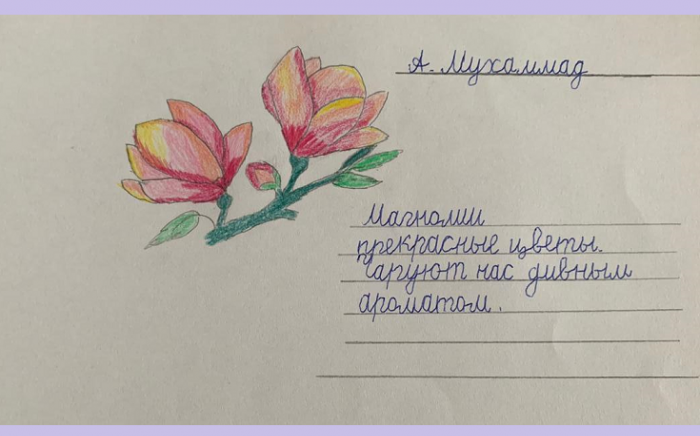 А. Мухаммад
Магнолии
прекрасные цветы.
Чаруют нас дивным
ароматом.